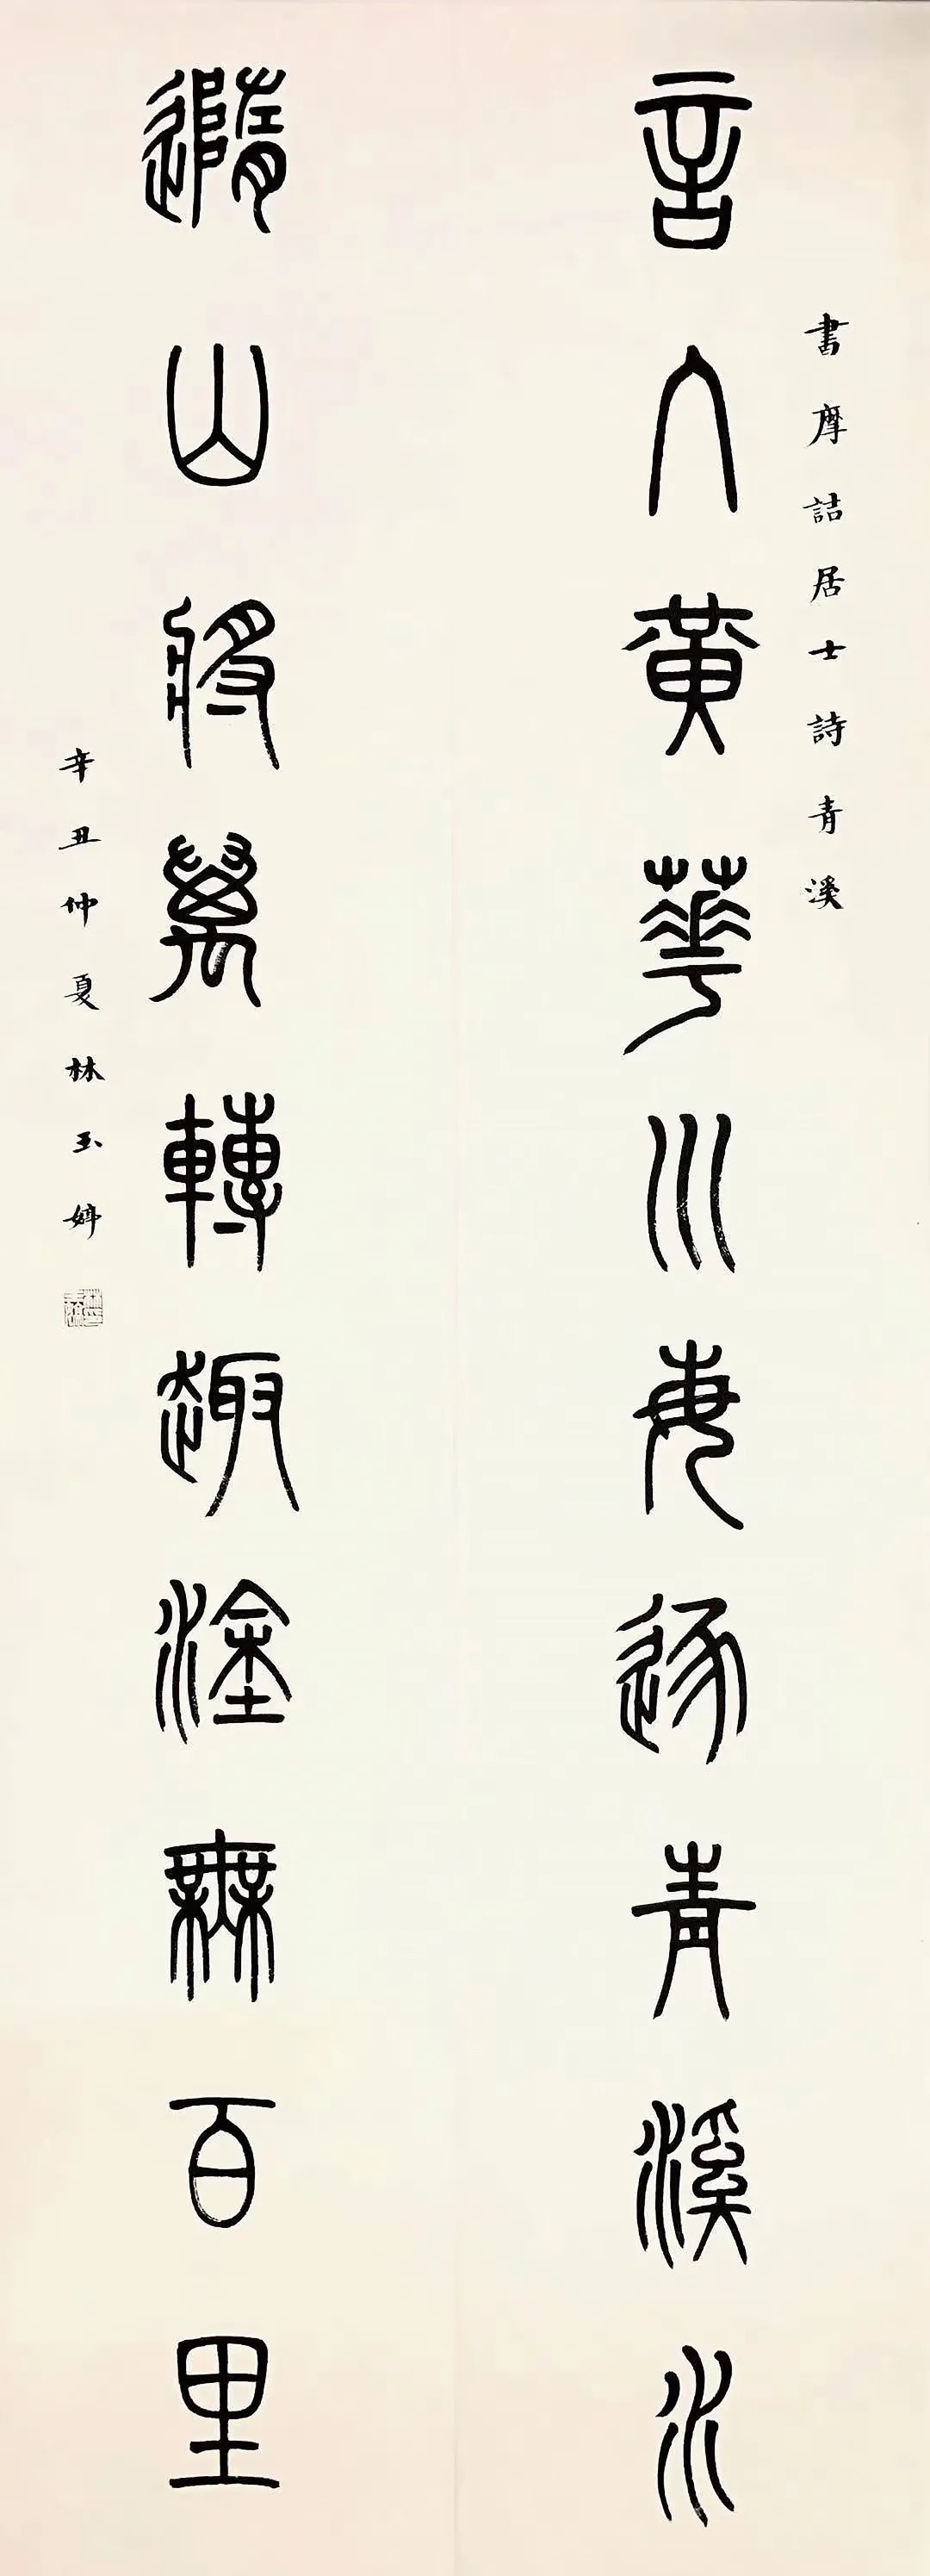 書摩詰居士詩青溪
言入黃華川每逐青溪水
隨山將萬轉趣塗無百里
辛丑仲夏林玉婷